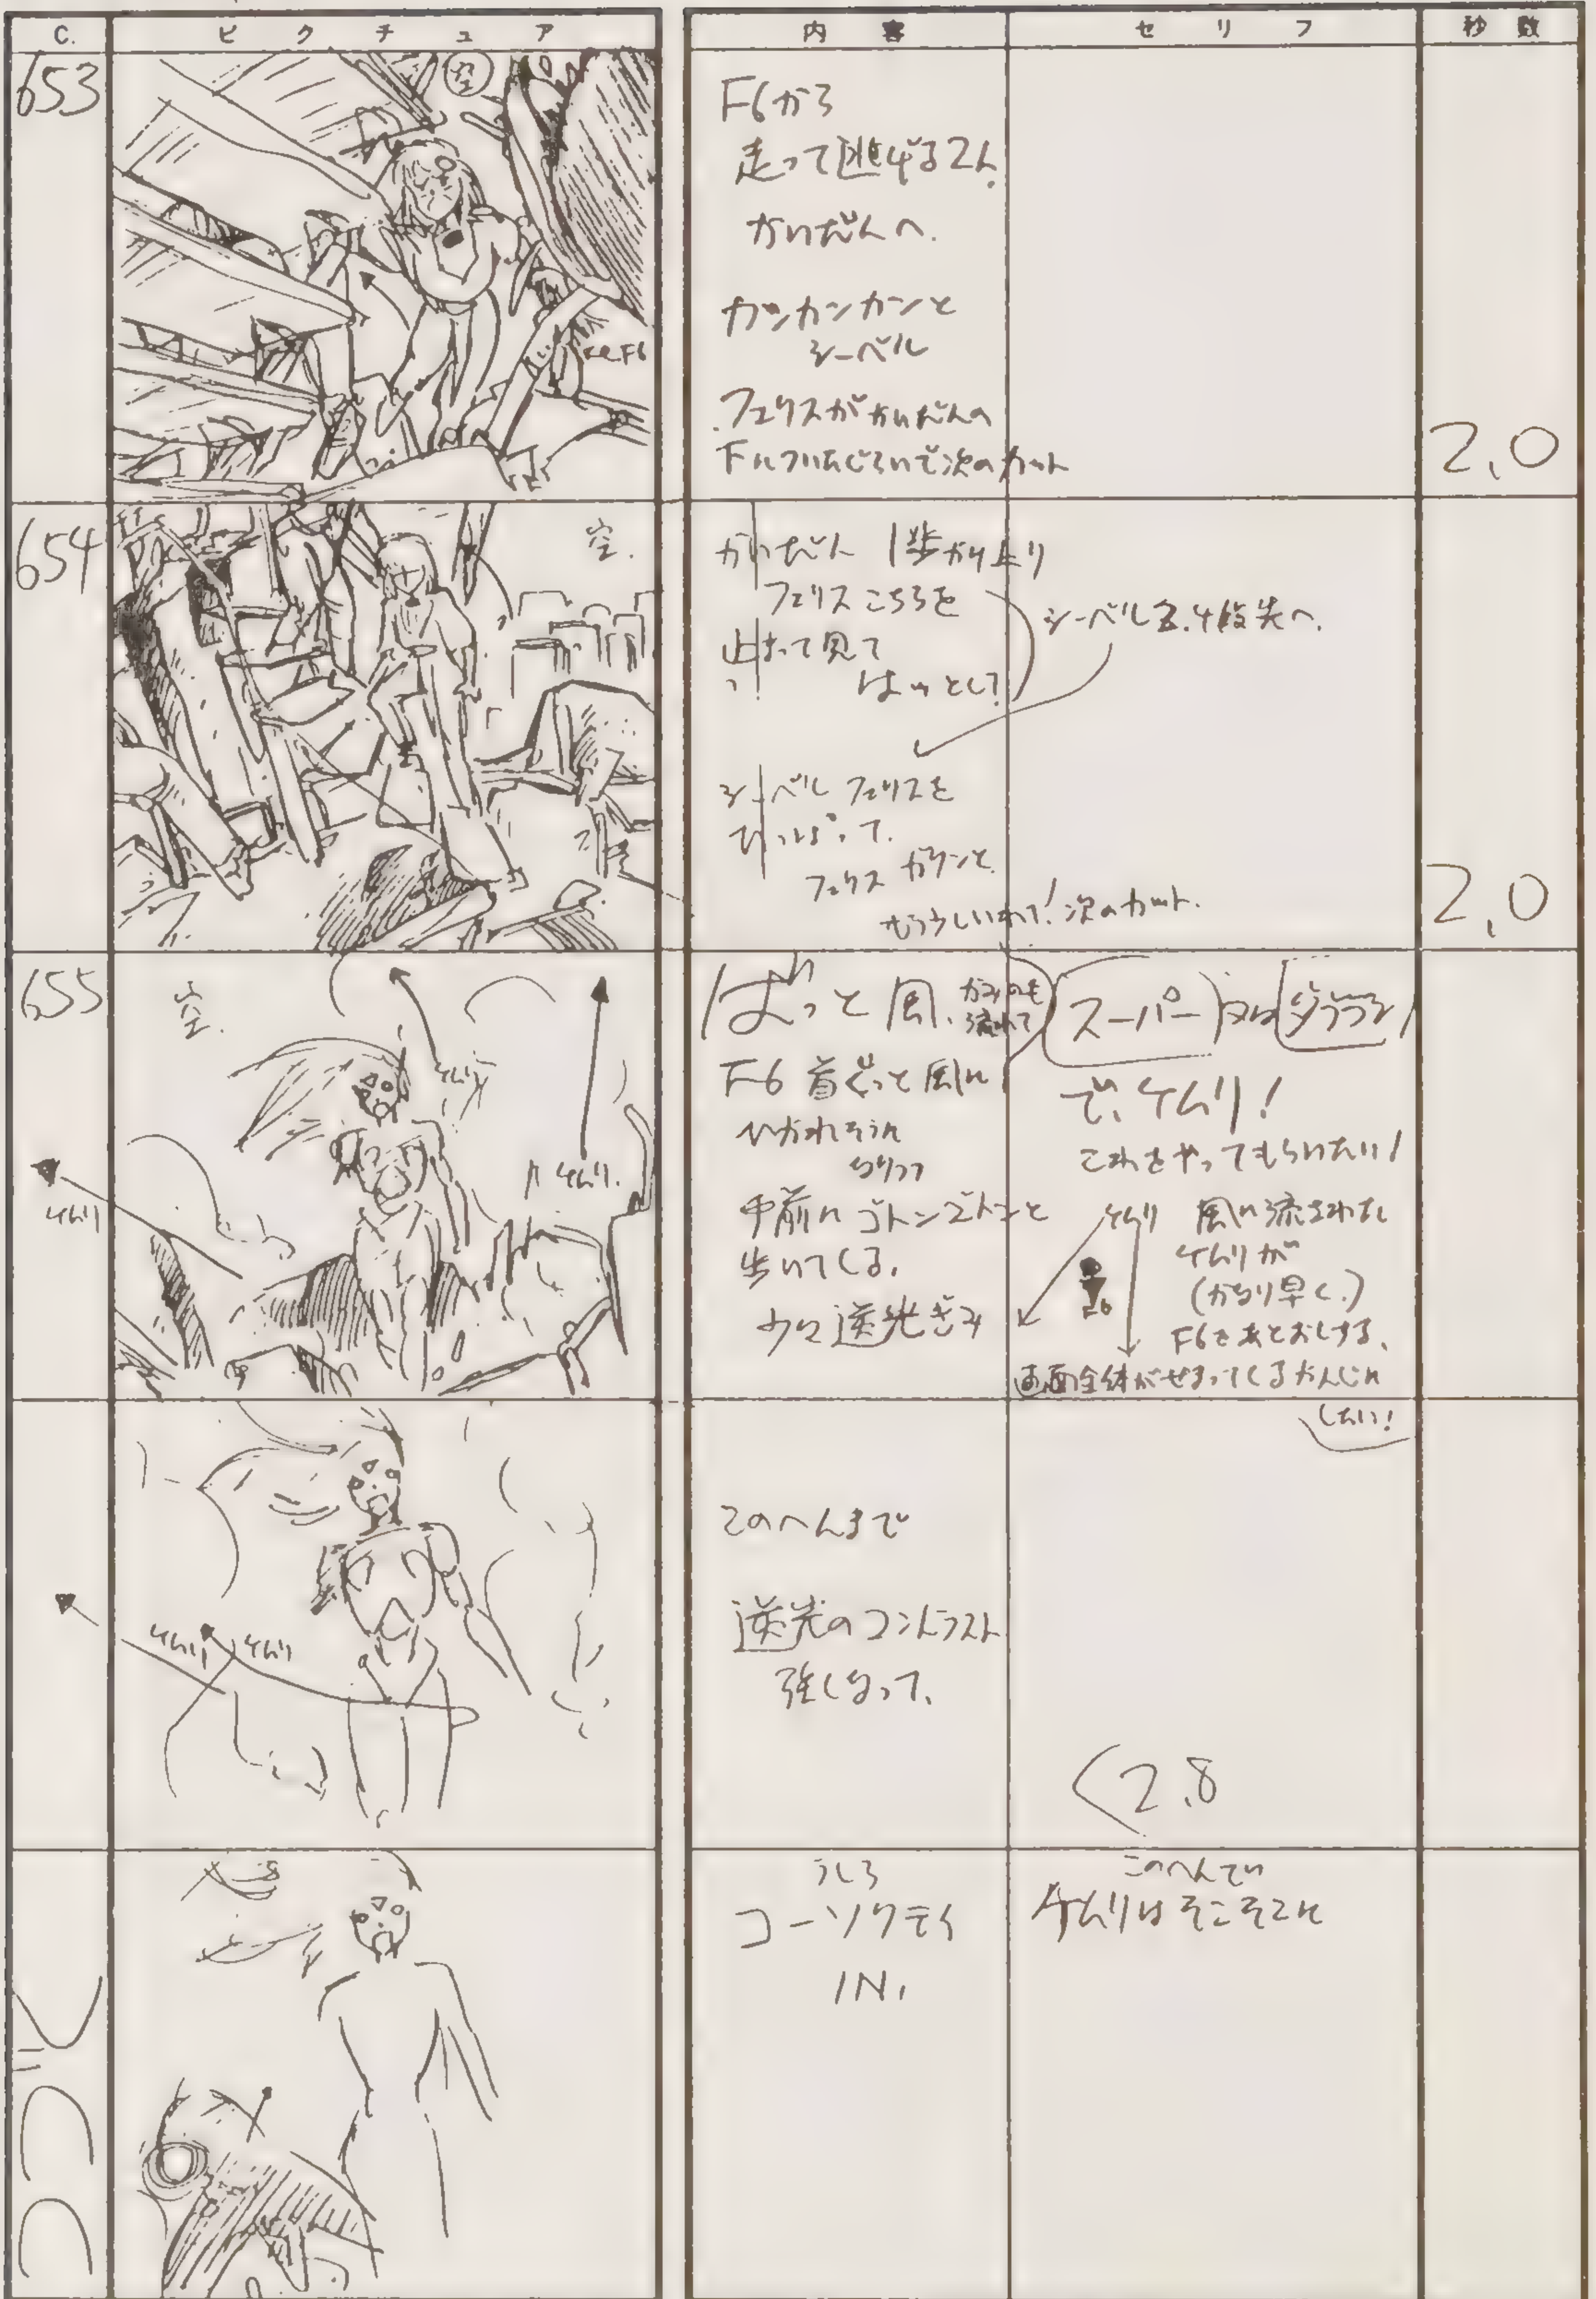 C. ピクチュア 内容 セリフ 秒数
653
空
F6
F6から
走って逃げる2人
かいだんへ.
カンカンカンと
シーベル
フェリスがかいだんの
下についたぐらいで次のカット
2.0
654
空.
かいだん 1歩かけ上り
フェリスこちらを
止まって見て
はっとして
シーベル3.4段先へ.
シーベル フェリスを
ひっぱって.
フェリス ガクンと
次のカット.
2.0
655
空.
ケムリ
ケムリ
ケムリ.
ばっと風、かみのも
流れて
スーパー 又は ダブラシ
で、ケムリ!
これをやってもらいたい!
F6 首ぐっと風に
ひかれそうに
なりつつ
手前にゴトンゴトンと
歩いてくる.
少々逆光ぎみ
ケムリ 風に流された
ケムリが
(かなり早く.)
F6をあとおしする.
F6
画面全体がせまってくるかんじに
したい!
ケムリ ケムリ
このへんまで
逆光のコントラスト
強くなって、
2.8
うしろ
コーソクテイ
IN.
このへんでは
ケムリはそこそこに